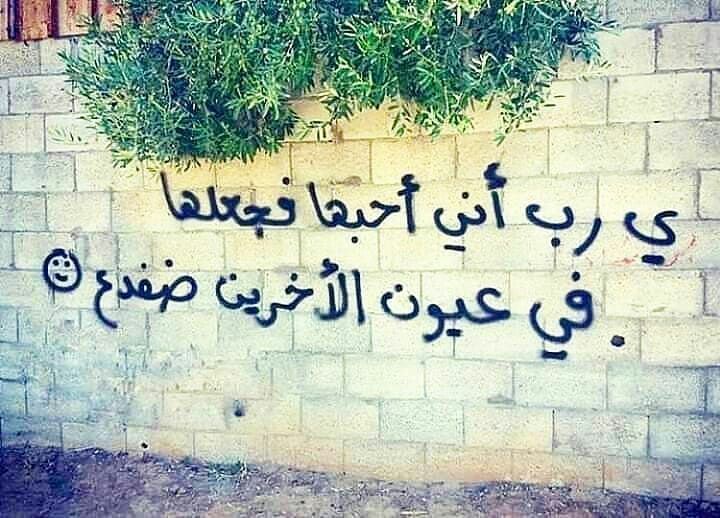 ي رب أني أحبها فجعلها
في عيون الأخرين ضفدع